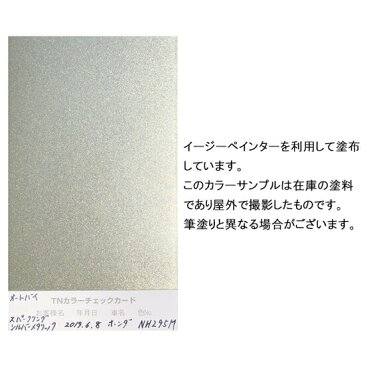 イージーペインターを利用して塗布
しています。
このカラーサンプルは在庫の塗料
であり屋外で撮影したものです。
筆塗りと異なる場合がございます。
オートバイ
TNカラーチェックカード
お客様名 年月日 車名 色No
スパークリング
シルバーメタリック 2019.6.8 ホンダ NH295M